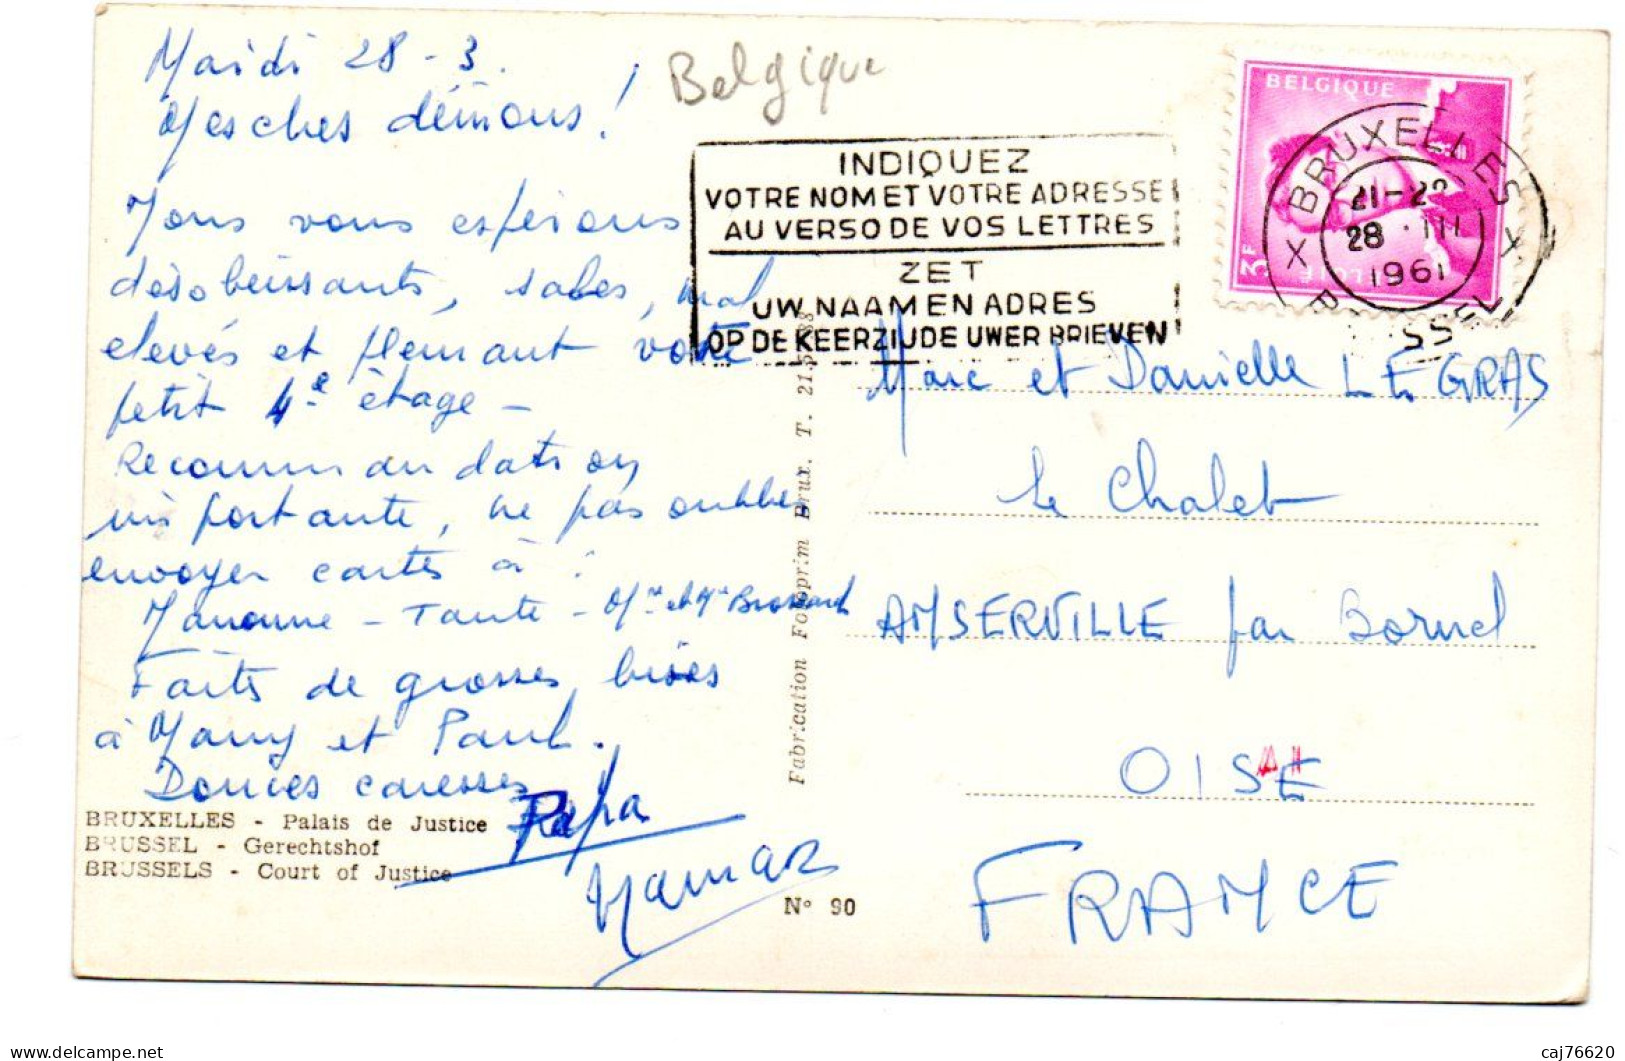 Mardi 28-3.
Mes chers démons!
Nous vous espérons
désobéissants, sales, mal
élevés et pleurant votre
petit 4e étage -
Recommandation
importante, ne pas oublier
envoyer cartes à :
Manoune - Tante - Mr et Me
Faites de grosses bises
à Mamy et Paul.
Douces caresses
Papa
Maman
BRUXELLES - Palais de Justice
BRUSSEL - Gerechtshof
BRUSSELS - Court of Justice
Belgique
INDIQUEZ
VOTRE NOM ET VOTRE ADRESSE
AU VERSO DE VOS LETTRES
ZET
UW NAAM EN ADRES
OP DE KEERZIJDE UWER BRIEVEN
BELGIQUE
3F
X BRUXELLES X
21-22
28 · III
1961
Fabrication Fotoprim Brux. T. 21.
Nº 90
Marc et Danielle LEGRAS
Le Chalet
AMSERVILLE par Bornel
OISE
FRANCE
delcampe.net
caj76620